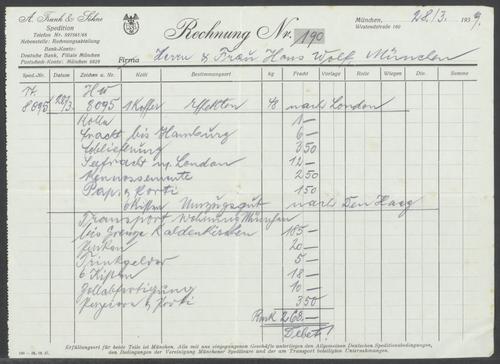 A. Frank & Söhne
Spedition
Telefon Nr. 597561/65
Nebenstelle: Rechnungsabteilung
Bank-Konto:
Deutsche Bank, Filiale München
Postscheck-Konto: München 6029
Rechnung Nr. 190
München, 28./3. 1939.
Westendstraße 160
Firma Herrn & Frau Hans Wolf, München
Sped.-Nr. Datum Zeichen u. Nr. Kolli Bestimmungsort kg Fracht Vorlage Rolle Wiegen Div. Nachn.
H W
8095 28/3. 8095 1 Koffer Effekten nach London
Rolla 1 —
Fracht bis Hamburg 6 —
350
Seefracht n. London 12 —
250
Porti 150
6 Kisten Umzugsgut nach Den Haag
Transport Wohnung München
bis Grenze Kaldenkirchen 185 —
20 —
Trinkgelder 5 —
6 Kisten 18 —
Zollabfertigung 10 —
& Porti 350
Rmk 268.—
Debet!
Erfüllungsort für beide Teile ist München. Alle mit uns eingegangenen Geschäfte unterliegen den Allgemeinen Deutschen Spediteurbedingungen,
den Bedingungen der Vereinigung Münchener Spediteure und der am Transport beteiligten Unternehmungen.